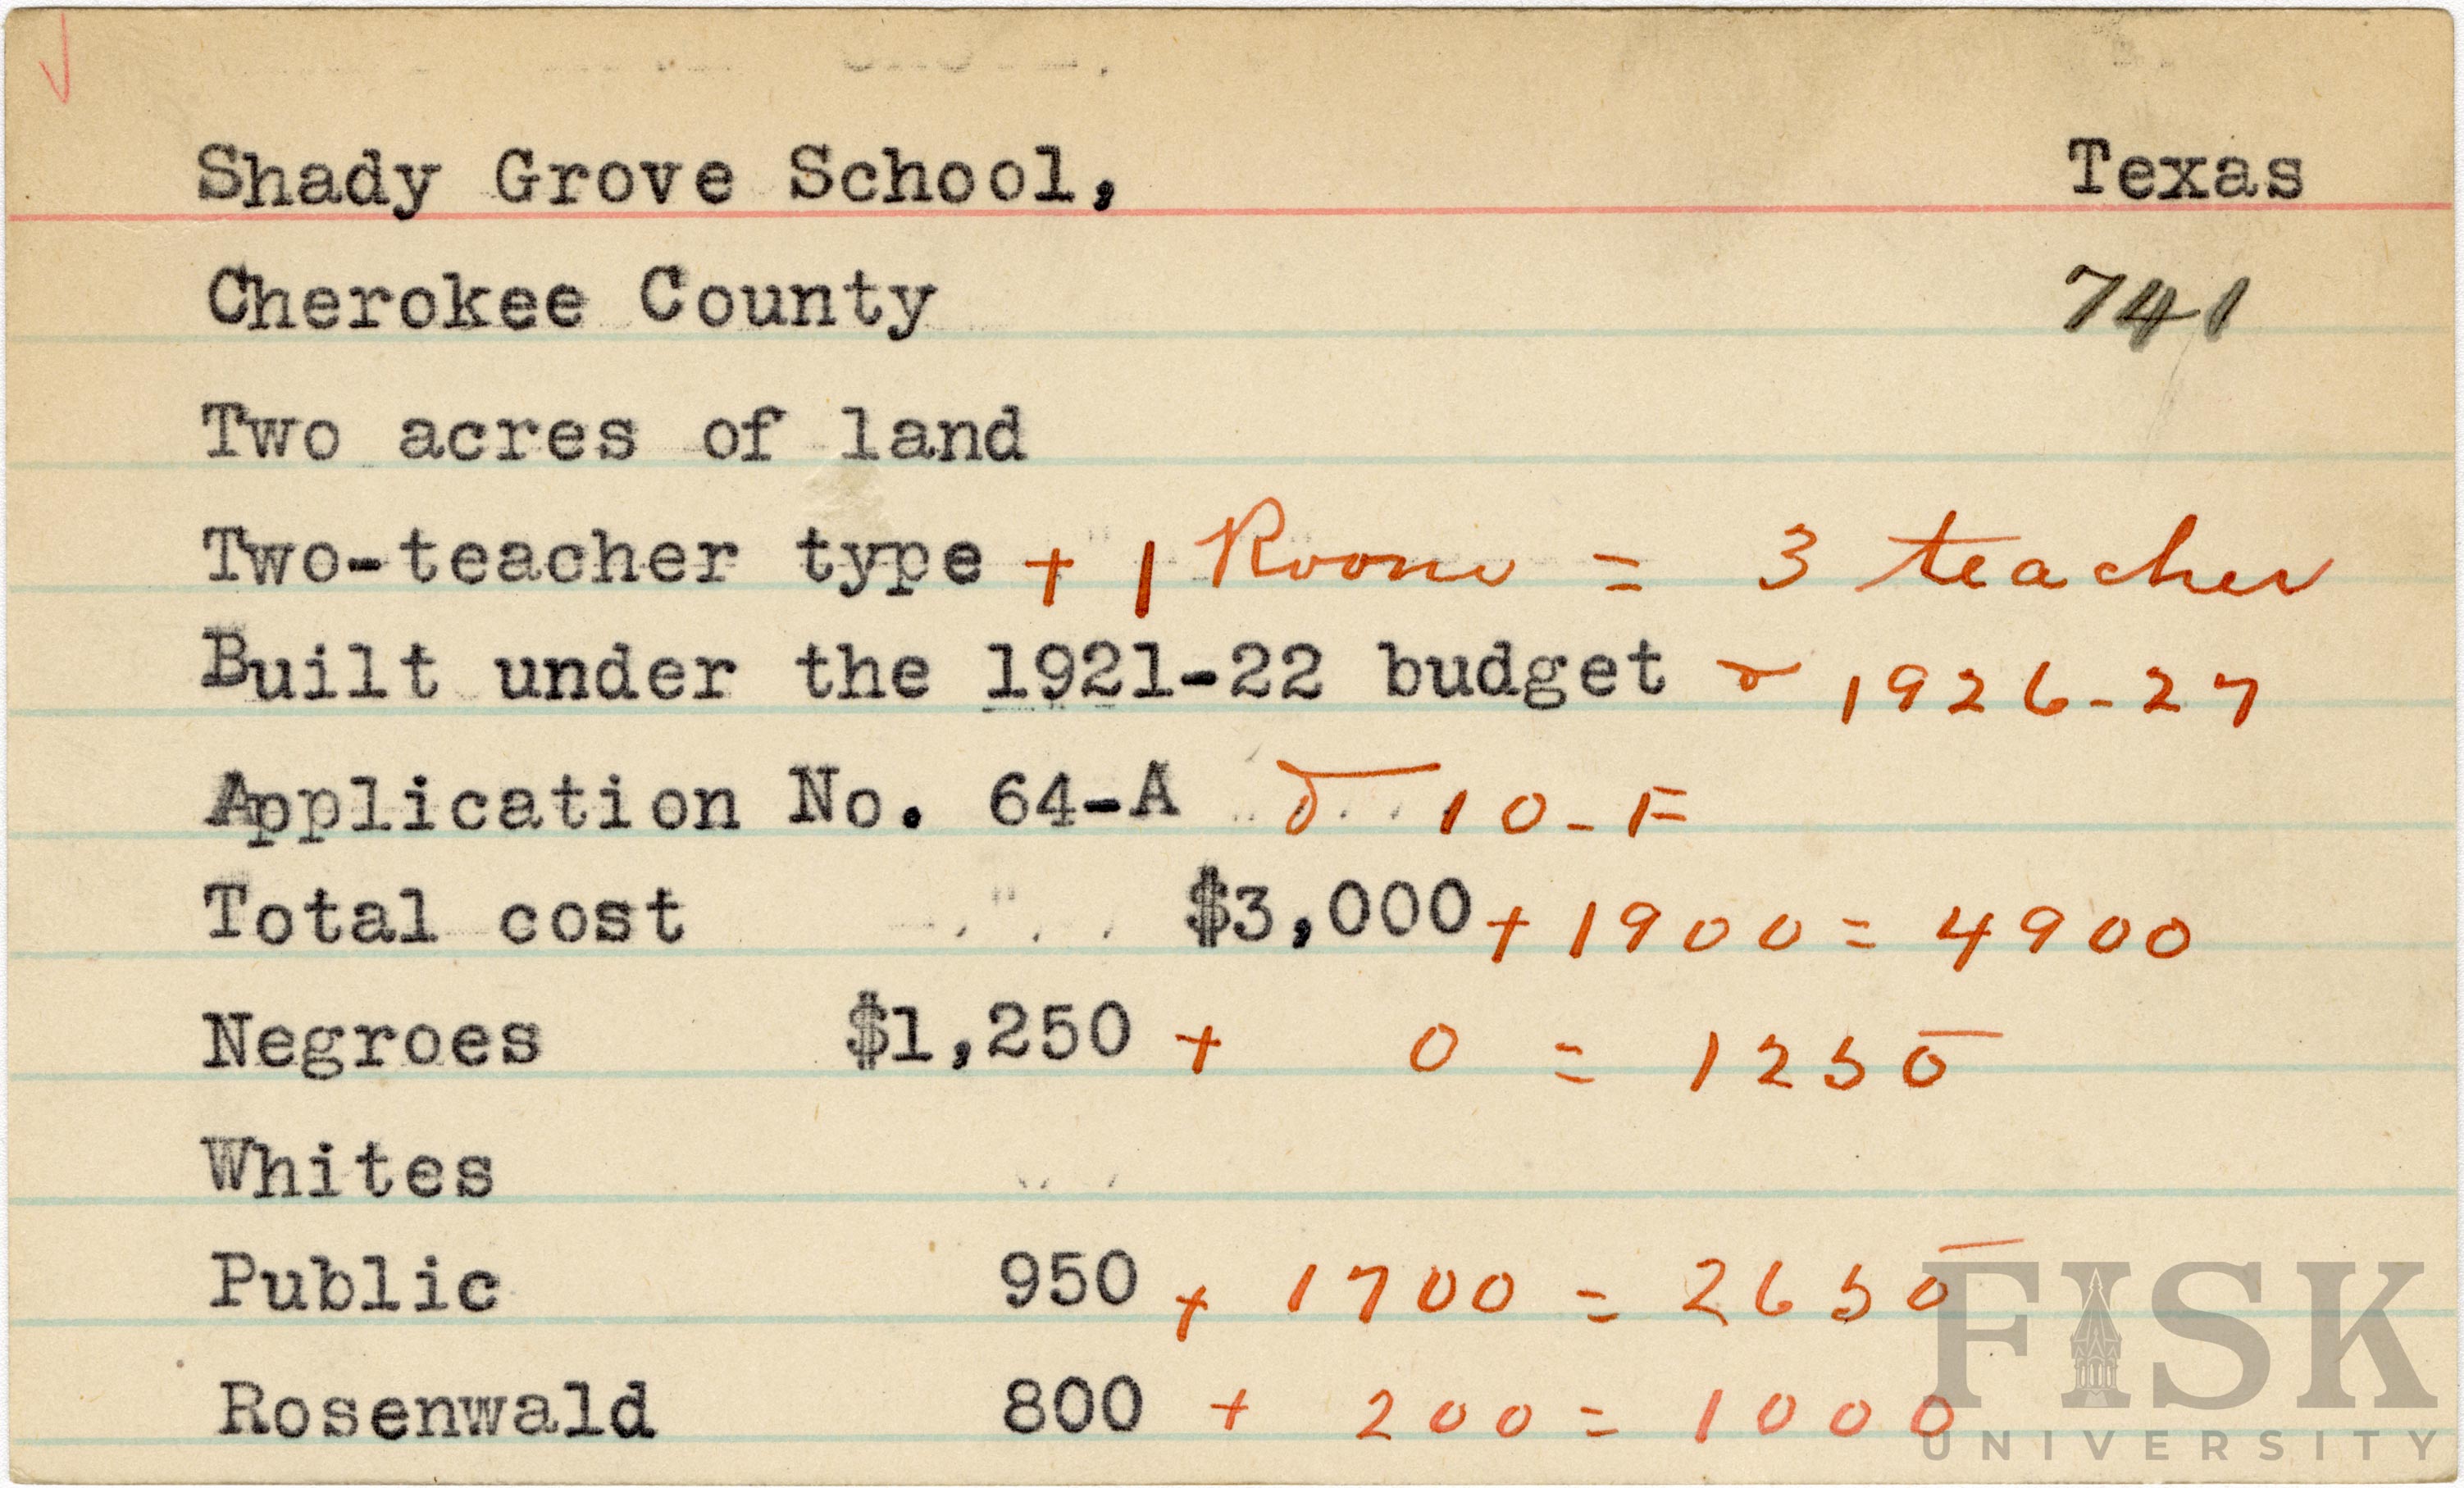 Shady Grove School, Texas
Cherokee County 741
Two acres of land
Two-teacher type + 1 Room = 3 teacher
Built under the 1921-22 budget & 1926-27
Application No. 64-A & 10-F
Total cost $3,000 + 1900 = 4900
Negroes $1,250 + 0 = 1250
Whites
Public 950 + 1700 = 2650
Rosenwald 800 + 200 = 1000
FISK
UNIVERSITY